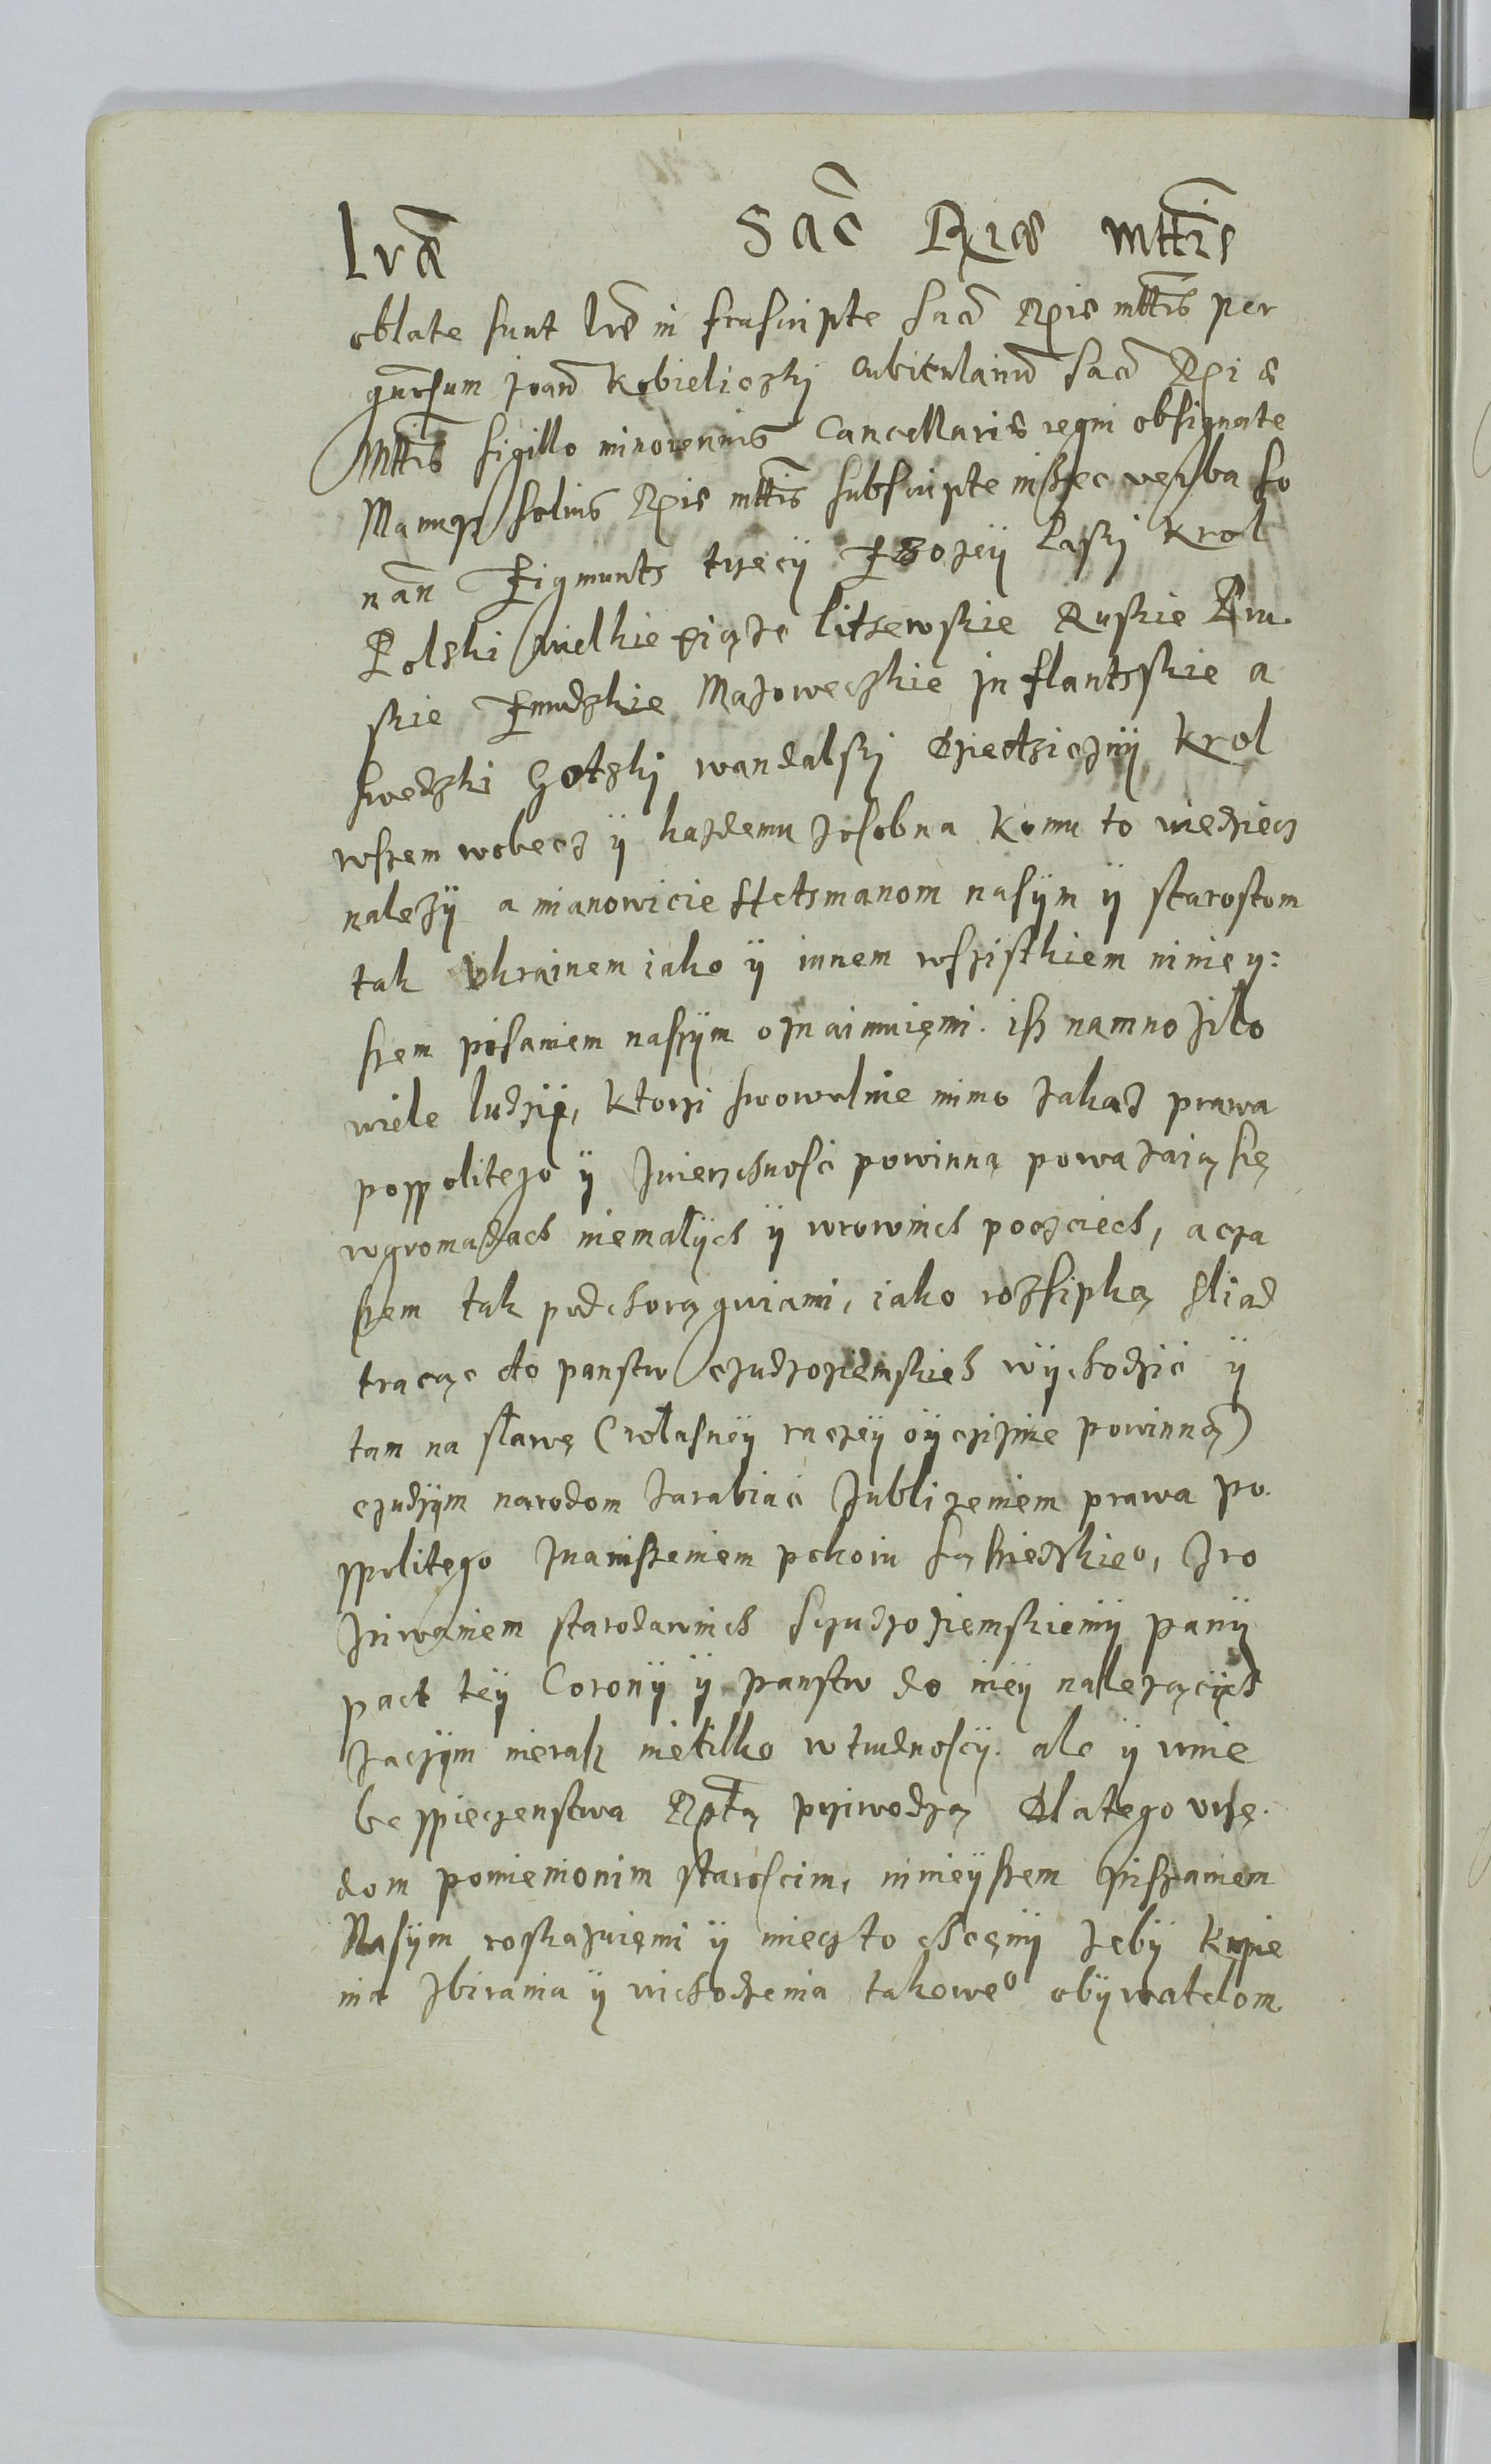 Lrae Sac Rgiae Mttis
oblate sunt lre in frascripte Sac Rgie mttis per
gnrosum Joan Kobieliczki cubicularium Sac Rgie
Mttis sigillo minorennis Cancellarie regni obsignate
Manuqz solius Rgie mttis subscripte in haec verba so
nan Zigmunts trzeci z Bozey laski Krol
Polski wielkie xiąze litewskie Ruskie Pru.
skie Zmudzkie Mazoweczkie Jnflantskie a
swedzki Gotski wandalski dziedziczny Krol
wszem wobecz y kazdemu zosobna komu to wiedziecz
nalezy a mianowicie Hetsmanom nasym y starostom
tak Vkrainem iako y innem wszistkiem niniey:
szem pisaniem naszym oznaimuięmi. isz namnozilo
wiele ludzij, ktorzi swowolnie mimo zakaz prawa
pospolitego y zwierzchnosci powinną powazaią się
wgromadach niemalych y wrowinch pocztech, a cza
szem tak pod choragwiami, iako rozsipką sliad
tracąc do panstw czudzoziemskich wychodzic y
tam na slawę (wlasney raczey oyczizine powinną)
czudzym narodom zarabiac zublizeniem prawa po.
spolitego znaniszeniem pokoiu sąsiedzkieo, zro
zriwaniem starodawnich sczudzoziemskiemy pany
pact tey Corony y panstw do niey nalezących
zaczym nierasz nietilko w trudnoscy. ale y wnie
bespieczenstwa Rptą prziwodzą dlatego vrzę.
dom pomienionim staroscim, ninieyszem piszaniem
Nasym roskazuięmi y miecz to chcęmy zeby kupie
nia zbirania y wichodzenia takoweo obywatelom